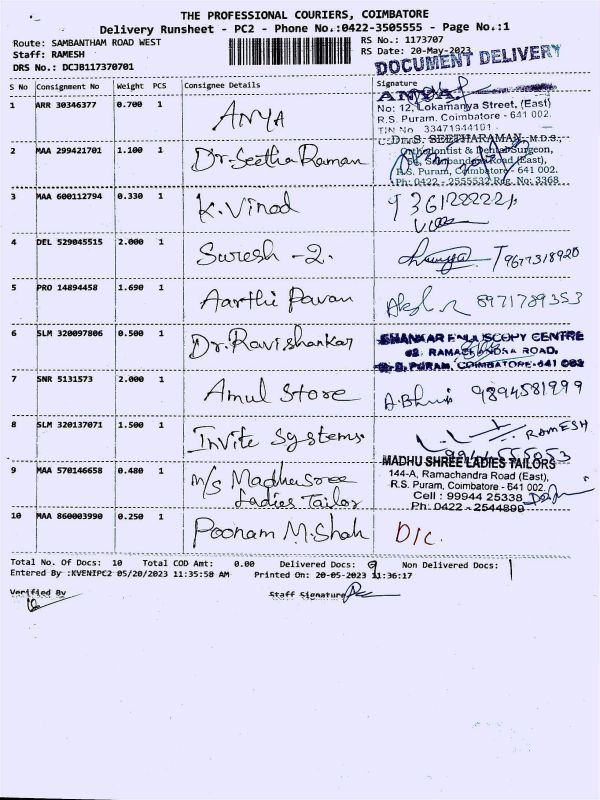 THE PROFESSIONAL COURIERS, COIMBATORE
Delivery Runsheet - PC2 - Phone No.:0422-3505555 - Page No.:1
Route: SAMBANTHAM ROAD WEST RS No.: 1173707
Staff: RAMESH RS Date: 20-May-2023
DRS No.: DCJB117370701 DOCUMENT DELIVERY
S No Consignment No Weight PCS Consignee Details Signature
1 ARR 30346377 0.700 1 ANYA
No: 12, Lokamanya Street, (East)
R.S. Puram, Coimbatore - 641 002.
TIN No 33471944101
2 MAA 299421701 1.100 1 Dr. Seetha Raman
Dr. S. SEETHARAMAN, M.D.S.,
Orthodontist & Dental Surgeon,
Road (East),
R.S. Puram, Coimbatore - 641 002.
Ph: 0422 - 2555532 Reg. No: 3368
3 MAA 600112794 0.330 1 K. Vinod
4 DEL 529045515 2.000 1 Suresh - 2. 9677318920
5 PRO 14894458 1.690 1 Aarthi Pavan 8971789353
6 SLM 320097806 0.500 1 Dr. Ravishankar
SHANKAR ENDOSCOPY CENTRE
RAMACHANDRA ROAD,
R.S. PURAM, COIMBATORE-641 002
7 SNR 5131573 2.000 1 Amul Store 9894581999
8 SLM 320137071 1.500 1 Invite Systems RAMESH
9 MAA 570146658 0.480 1 M/s Madhusree
Ladies Tailor
MADHU SHREE LADIES TAILORS
144-A, Ramachandra Road (East),
R.S. Puram, Coimbatore - 641 002.
Cell : 99944 25338
Ph: 0422 - 2544899
10 MAA 860003990 0.250 1 Poonam M. Shah D/C.
Total No. Of Docs: 10 Total COD Amt: 0.00 Delivered Docs: 9 Non Delivered Docs: 1
Entered By :KVENIPC2 05/20/2023 11:35:58 AM Printed On: 20-05-2023 11:36:17
Verified By Staff Signature